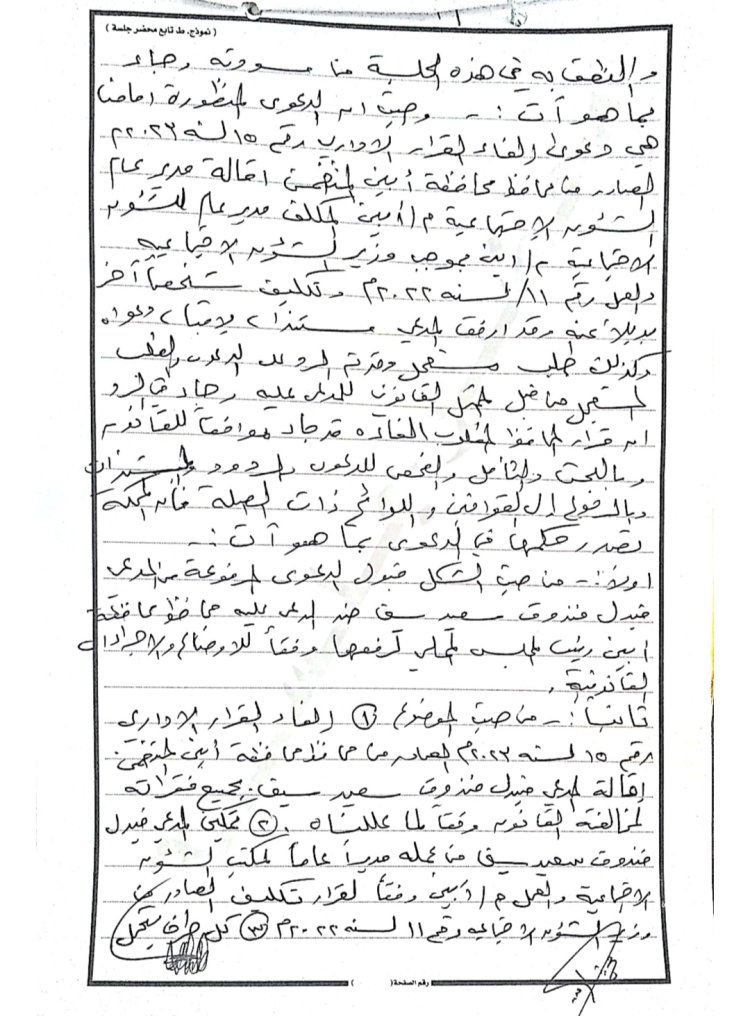 ( نموذج. ط تابع محضر جلسة )
والنطق به في هذه الجلسة من مسودته وجاء
بما هو آت :- وحيث ان الدعوى المنظورة امامنا
هي دعوى إلغاء القرار الاداري رقم ١٥ لسنه ٢٠٢٣م
الصادر من محافظ محافظة أبين المتضمن اقالة مدير عام
الشئون الاجتماعية م/أبين المكلف مدير عام للشئون
الاجتماعية م/ابين بموجب وزير الشئون الاجتماعيه
والعمل رقم ١١/ لسنه ٢٠٢٢م وتكليف شخصاً آخر
بديلاً عنه وقد ارفق المدعي مستندات لاثبات دعواه
وكذلك طلب مستعجل وقدم الرد على الدعوى والطلب
المستعجل من قبل الممثل القانوني للمدعى عليه وجاء في الرد
ان قرار المحافظ المطلوب الغائه قد جاء موافقاً للقانون
وبالبحث والتأمل والفحص للدعوى والردود والمستندات
وبالرجوع إلى القوانين واللوائح ذات الصلة فأن المحكمة
تصدر حكمها في الدعوى بما هو آت :-
اولاً :- من حيث الشكل قبول الدعوى المرفوعة من المدعي
خيدل مندوق سعيد سيق ضد المدعى عليه محافظ محافظة
أبين رئيس المجلس المحلي لرفعها وفقاً للاوضاع والاجراءات
القانونية .
ثانياً :- من حيث الموضوع ① إلغاء القرار الاداري
رقم ١٥ لسنه ٢٠٢٣م الصادر من محافظ محافظة أبين المتضمن
إقالة المدعي خيدل مندوق سعيد سيق بجميع فقراته
لمخالفته القانون وفقاً لما عللناه . ② تمكين المدعي خيدل
مندوق سعيد سيق من عمله مديراً عاماً لمكتب الشئون
الاجتماعية والعمل م/أبين وفقاً لقرار تكليف الصادر من
وزير الشئون الاجتماعيه رقم ١١ لسنه ٢٠٢٢م ③ كل طرف يتحمل
رقم الصفحة( )